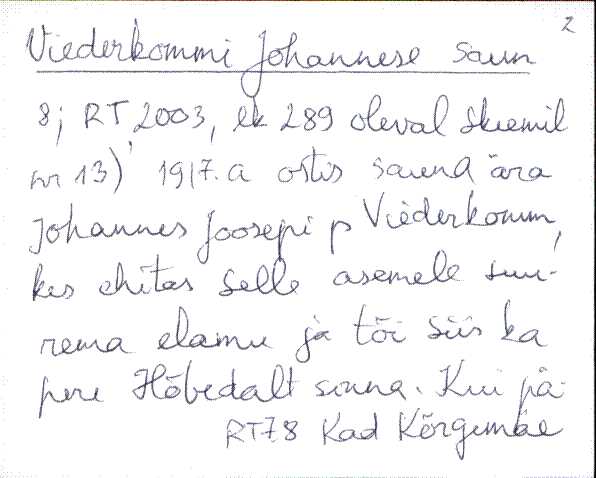 2
Viederkommi Johannese saun
8; RT 2003, lk 289 oleval skeemil
nr 13) 1917.a ostis sauna ära
Johannes Joosepi p Viederkomm,
kes ehitas selle asemele suu-
rema elamu ja tõi siis ka
pere Hõbedalt sinna. Kui pä-
RT78 Kad Kõrgemäe